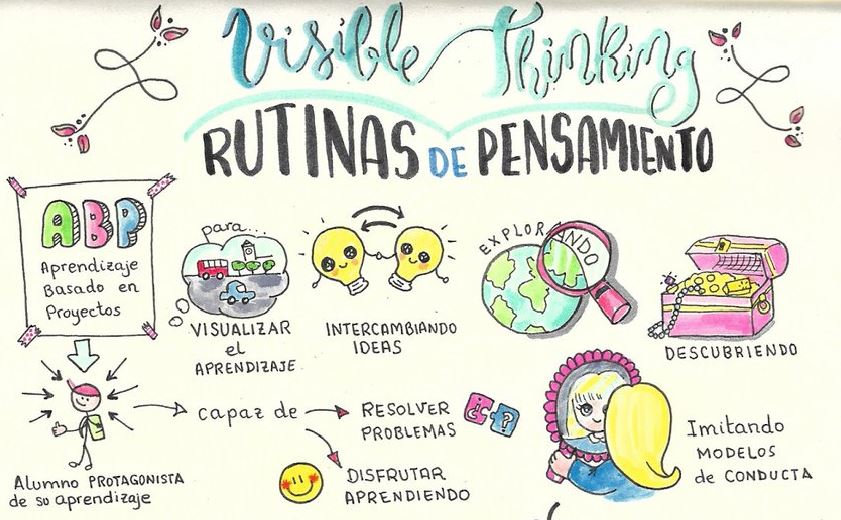 Visible Thinking
RUTINAS DE PENSAMIENTO
ABP
Aprendizaje
Basado en
Proyectos
para...
VISUALIZAR
el
APRENDIZAJE
INTERCAMBIANDO
IDEAS
EXPLORANDO
DESCUBRIENDO
Alumno PROTAGONISTA
de su aprendizaje
capaz de
RESOLVER
PROBLEMAS
¿ ?
DISFRUTAR
APRENDIENDO
Imitando
MODELOS
de CONDUCTA